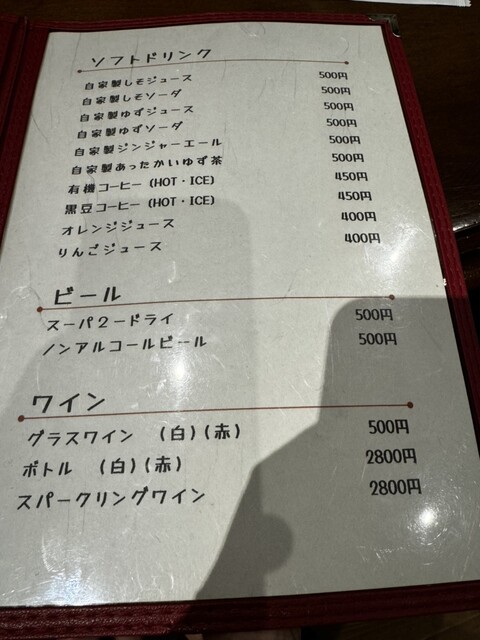 ソフトドリンク
自家製しそジュース 500円
自家製しそソーダ 500円
自家製ゆずジュース 500円
自家製ゆずソーダ 500円
自家製ジンジャーエール 500円
自家製あったかいゆず茶 500円
有機コーヒー (HOT・ICE) 450円
黒豆コーヒー (HOT・ICE) 450円
オレンジジュース 400円
りんごジュース 400円
ビール
スーパ2ードライ 500円
ノンアルコールビール 500円
ワイン
グラスワイン (白)(赤) 500円
ボトル (白)(赤) 2800円
スパークリングワイン 2800円